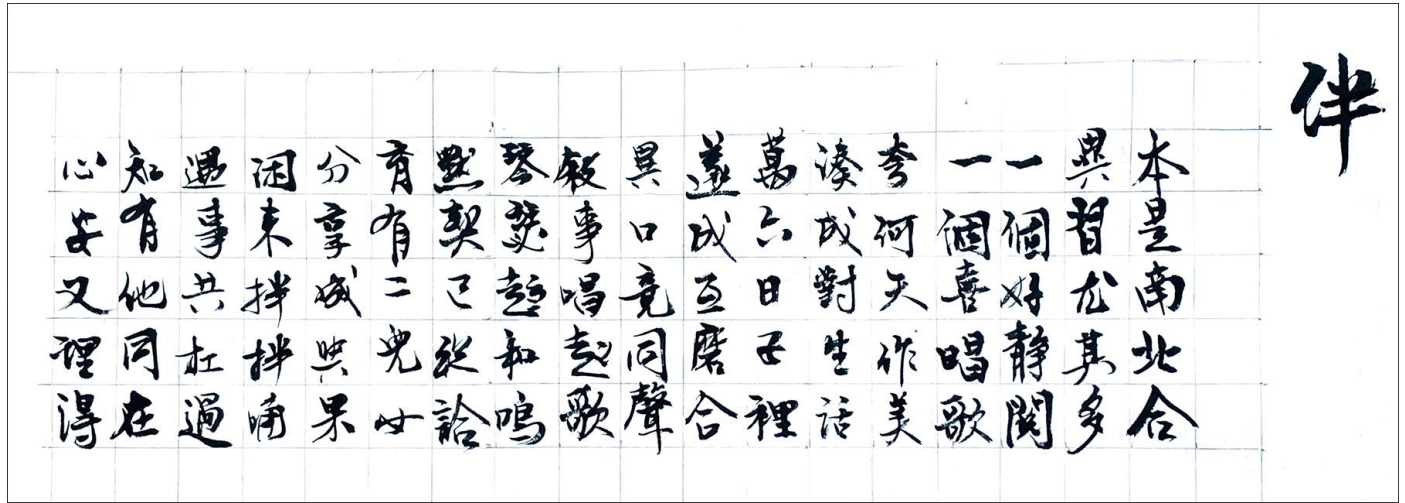 伴
本是南北合
異習尤其多
一個好靜閱
一個喜唱歌
奈何天作美
湊成對生活
萬六日子裡
遂成互磨合
異口竟同聲
敍事唱起歌
琴瑟起和鳴
默契已
育有二兒女
分享成與果
閑來拌拌
遇事共扛過
知有他同在
心安又理得